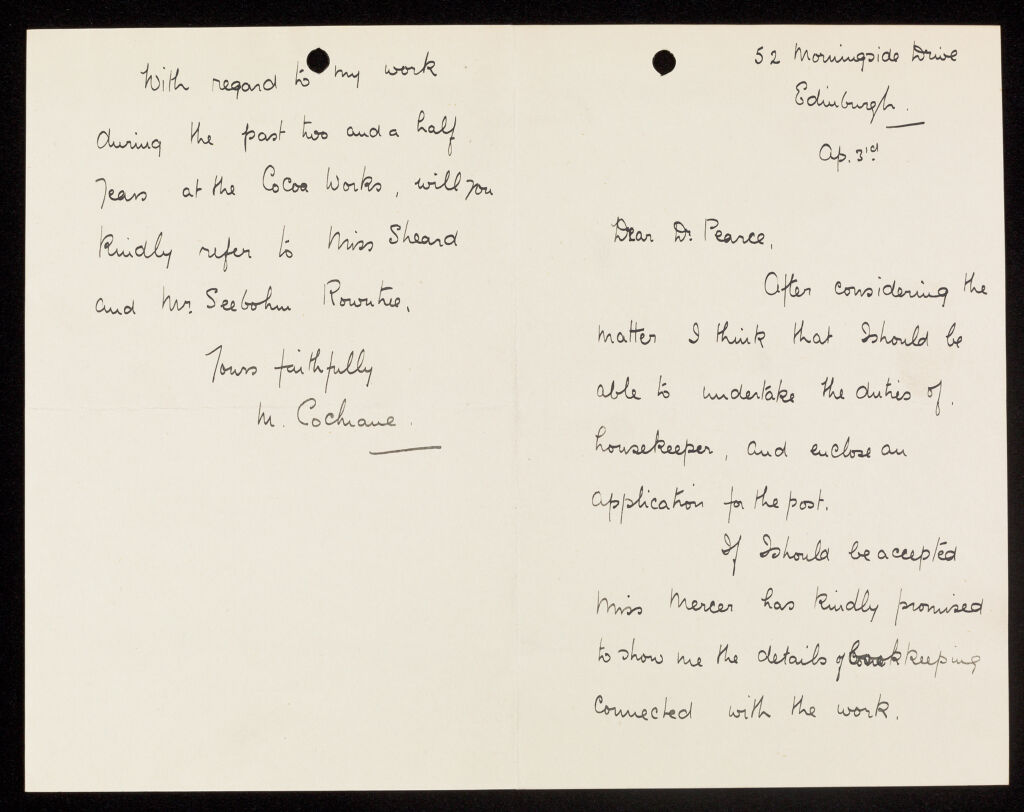 52 Morningside Drive
Edinburgh.
Ap. 3rd
Dear Dr Pearce,
After considering the
matter I think that I should be
able to undertake the duties of
housekeeper, and enclose an
application for the post.
If I should be accepted
Miss Mercer has kindly promised
to show me the details of bookkeeping
connected with the work.
With regard to my work
during the past two and a half
years at the Cocoa Works, will you
kindly refer to Miss Sheard
and Mr. Seebohm Rowntree.
Yours faithfully
M. Cochrane.